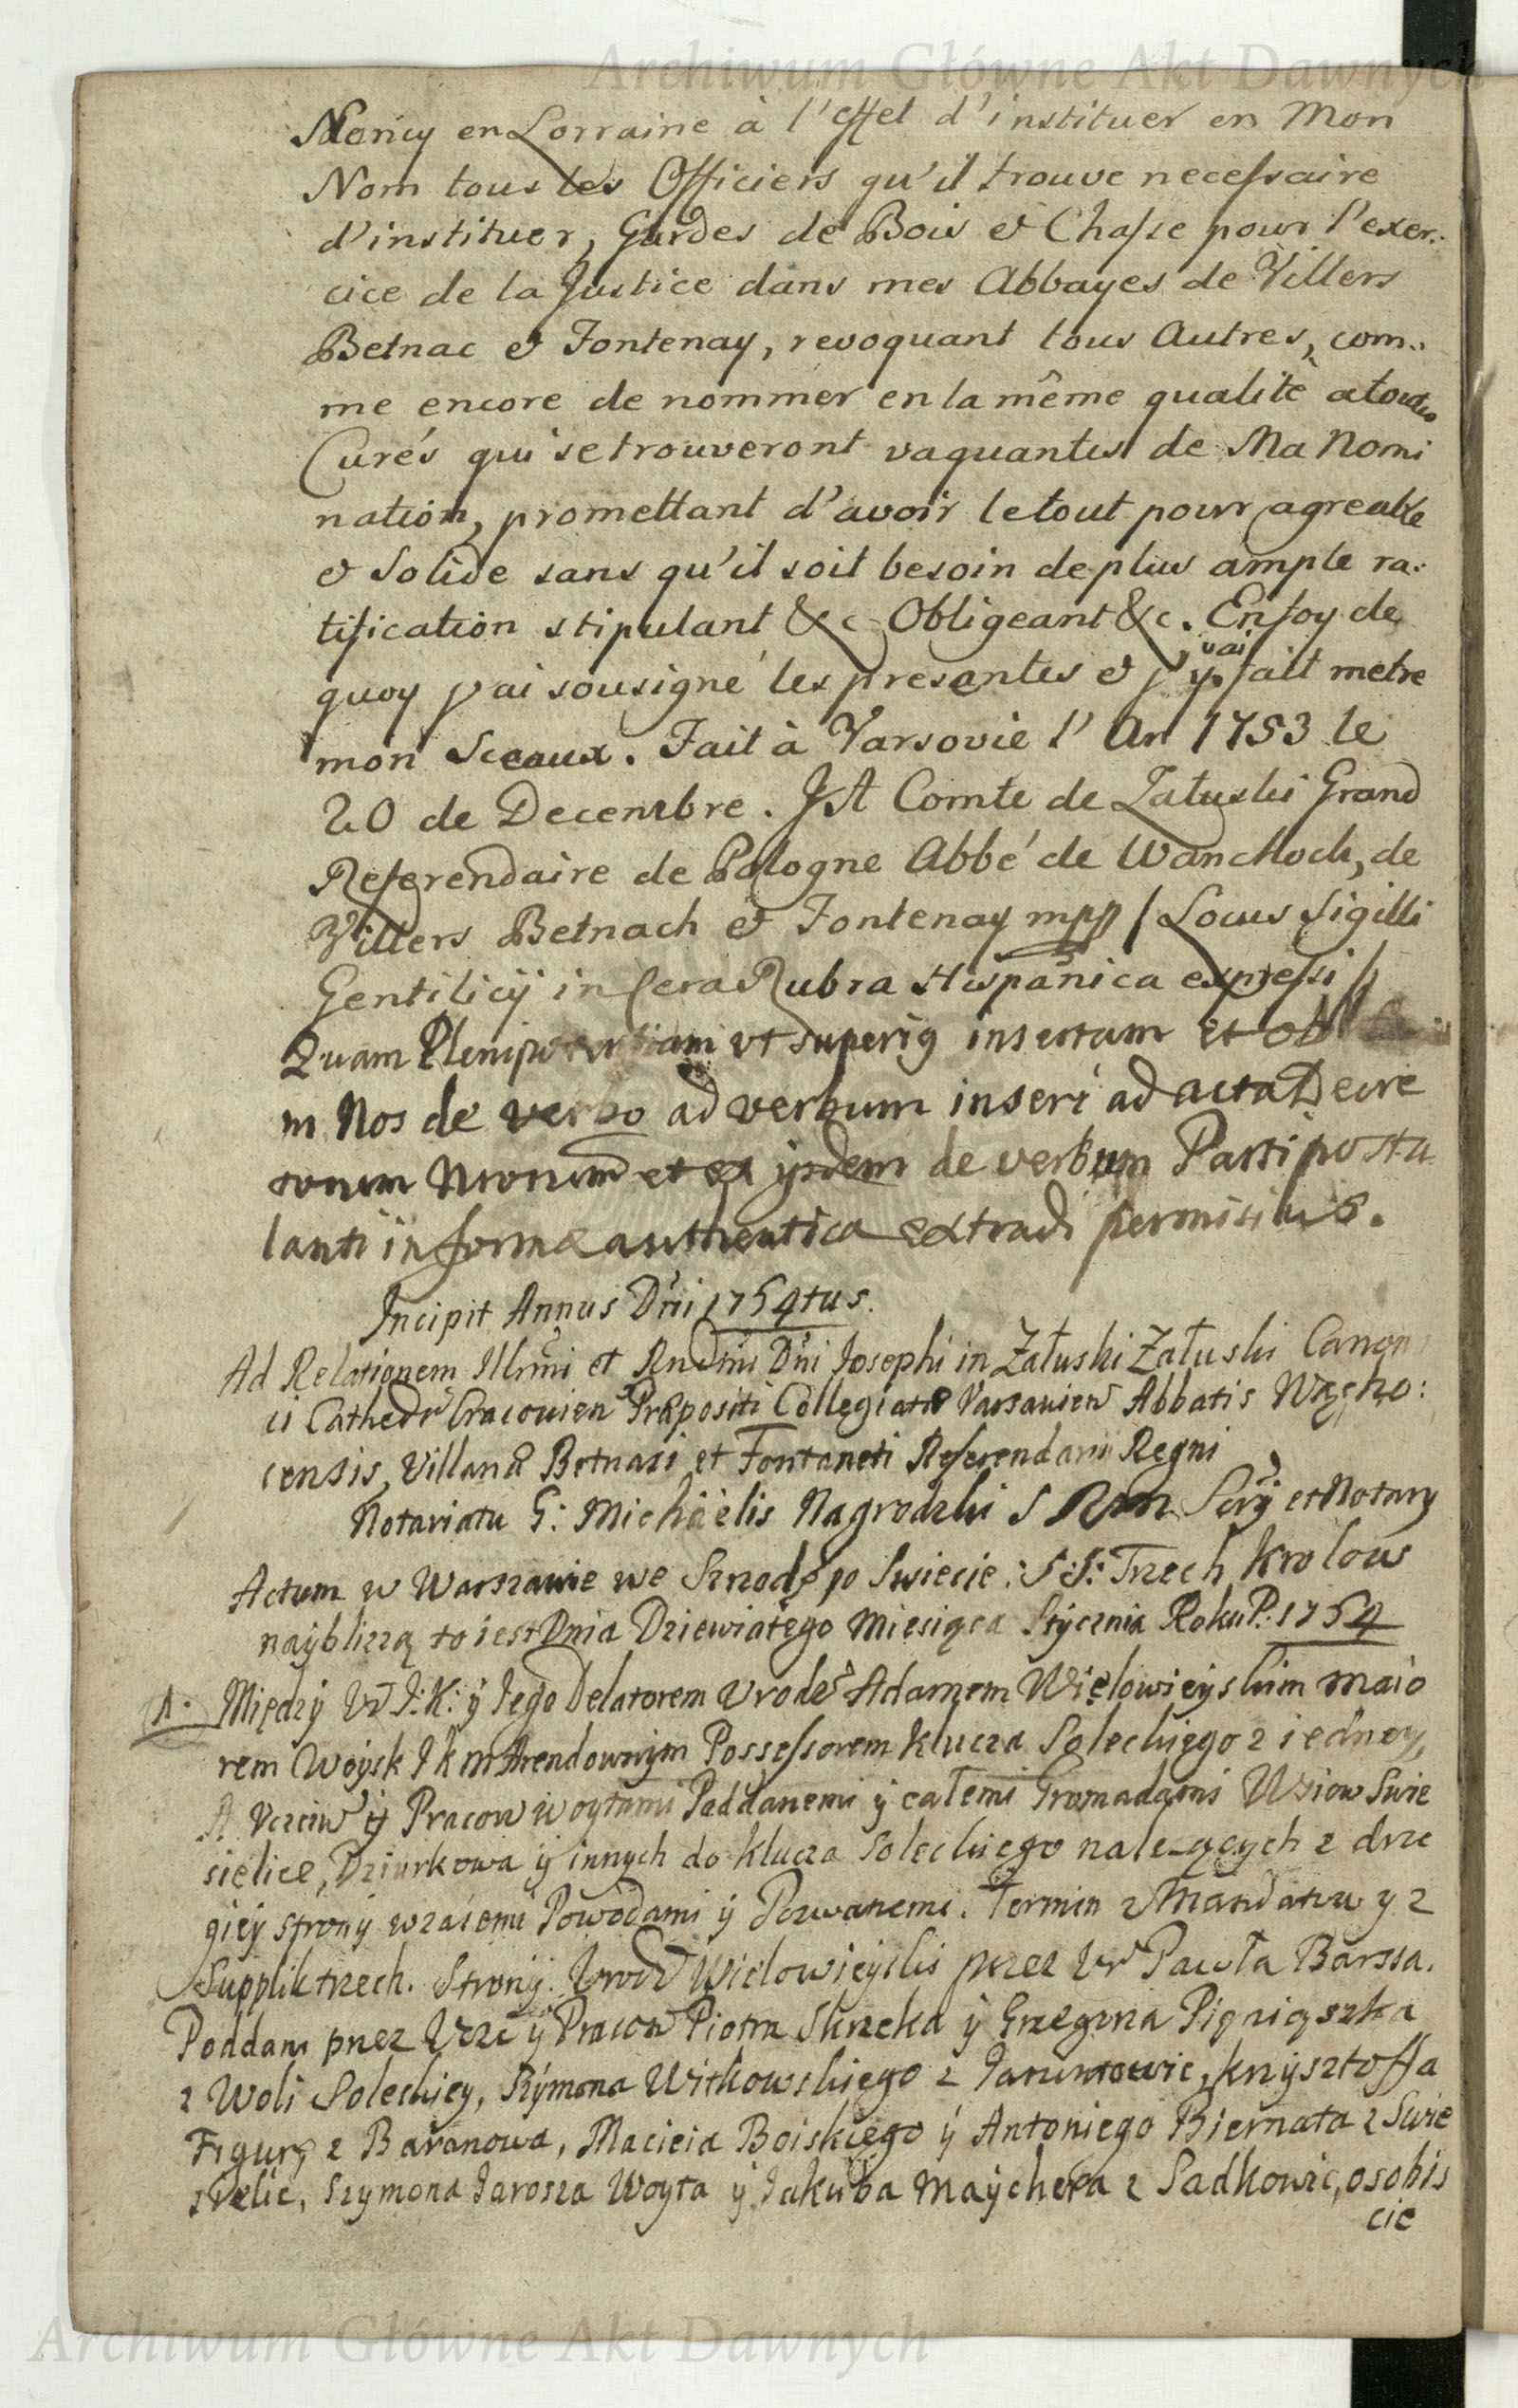 Archiwum Główne Akt Dawnych
Nancy en Lorraine à l'effet d'instituer en Mon
Nom tous les Officiers qu'il trouve necessaire
d'instituer, Gardes de Bois & Chasse pour l'exer:
cice de la Justice dans mes Abbayes de Villers
Betnac & Fontenay, revoquant tous Autres, com:
me encore de nommer en la même qualitè a toutes
Curés qui se trouveront vaquantes de Ma Nomi
nation, promettant d'avoir le tout pour agreable
& Solide sans qu'il soit besoin de plus ample ra:
tification stipulant &c Obligeant &c. En foy de
quoy j'ai sousigné les presentes & j'y ai fait metre
mon Sceaux. Fait à Varsovie l'An 1753 le
20 de Decembre. JA Comte de Załuski Grand
Referendaire de Pologne Abbé de Wanchock, de
Villers Betnach & Fontenay mpp / Locus Sigilli
Gentilicij in Cera Rubra Hispanica expressi /
Quam Plenipotentiam ut superig insertam et
m Nos de verbo ad verbum inseri ad acta Decre
torum Nrorum et ex ijsdem de verbum Parti postu
lanti in forma authentica extradi permisimus.
Incipit Annus Dni 1754tus.
Ad Relationem Illmi et Rndmi Dni Josephi in Załuski Załuski Canon
ci Cathedr Cracovien Præpositi Collegiatæ Varsavien Abbatis Wącho:
censis, Villarü Betnasi et Fontaneti Referendarii Regni
Notariatu G: Michäelis Nagrodzki S R m Scrij et Notary
Actum w Warszawie we Srzodę po Swiecie: S:S: Trzech Krolow
naÿblizszą to iest Dnia Dziewiatego Miesiąca Stycznia Roku P: 1754
1. Międzÿ Ur J:K: ÿ Jego Delatorem Urodz Adamem Wielowieyskim maio
rem Woysk JKM Arendownÿm Possessorem Klucza Soleckiego z iedney,
A Uczciw ÿ Pracow woytami Poddanemi ÿ całemi Gromadami Wsiow Swie
sielice, Dziurkowa ÿ innych do klucza Soleckiego należących z dru
gieÿ stronÿ wzaiemi Powodami ÿ Pozwanemi. Termin z Mandatu y z
Supplik trzech. Stronÿ. Urodz Wielowieyski przez Ur Pawła Barssa.
Poddani przez Ucz ÿ Pracow Piotra Skrzeka ÿ Grzegorza Pięniąszka
z Woli Soleckiey, Szÿmona Witkowskiego z Jaruntowic, Krzÿsztoffa
Figurę z Baranowa, Macieia Boiskiego ÿ Antoniego Biernata z Swie
sielic, Szymona Jarosza Woyta ÿ Jakuba Maÿchera z Sadkowic, osobis
cie
Archiwum Główne Akt Dawnych